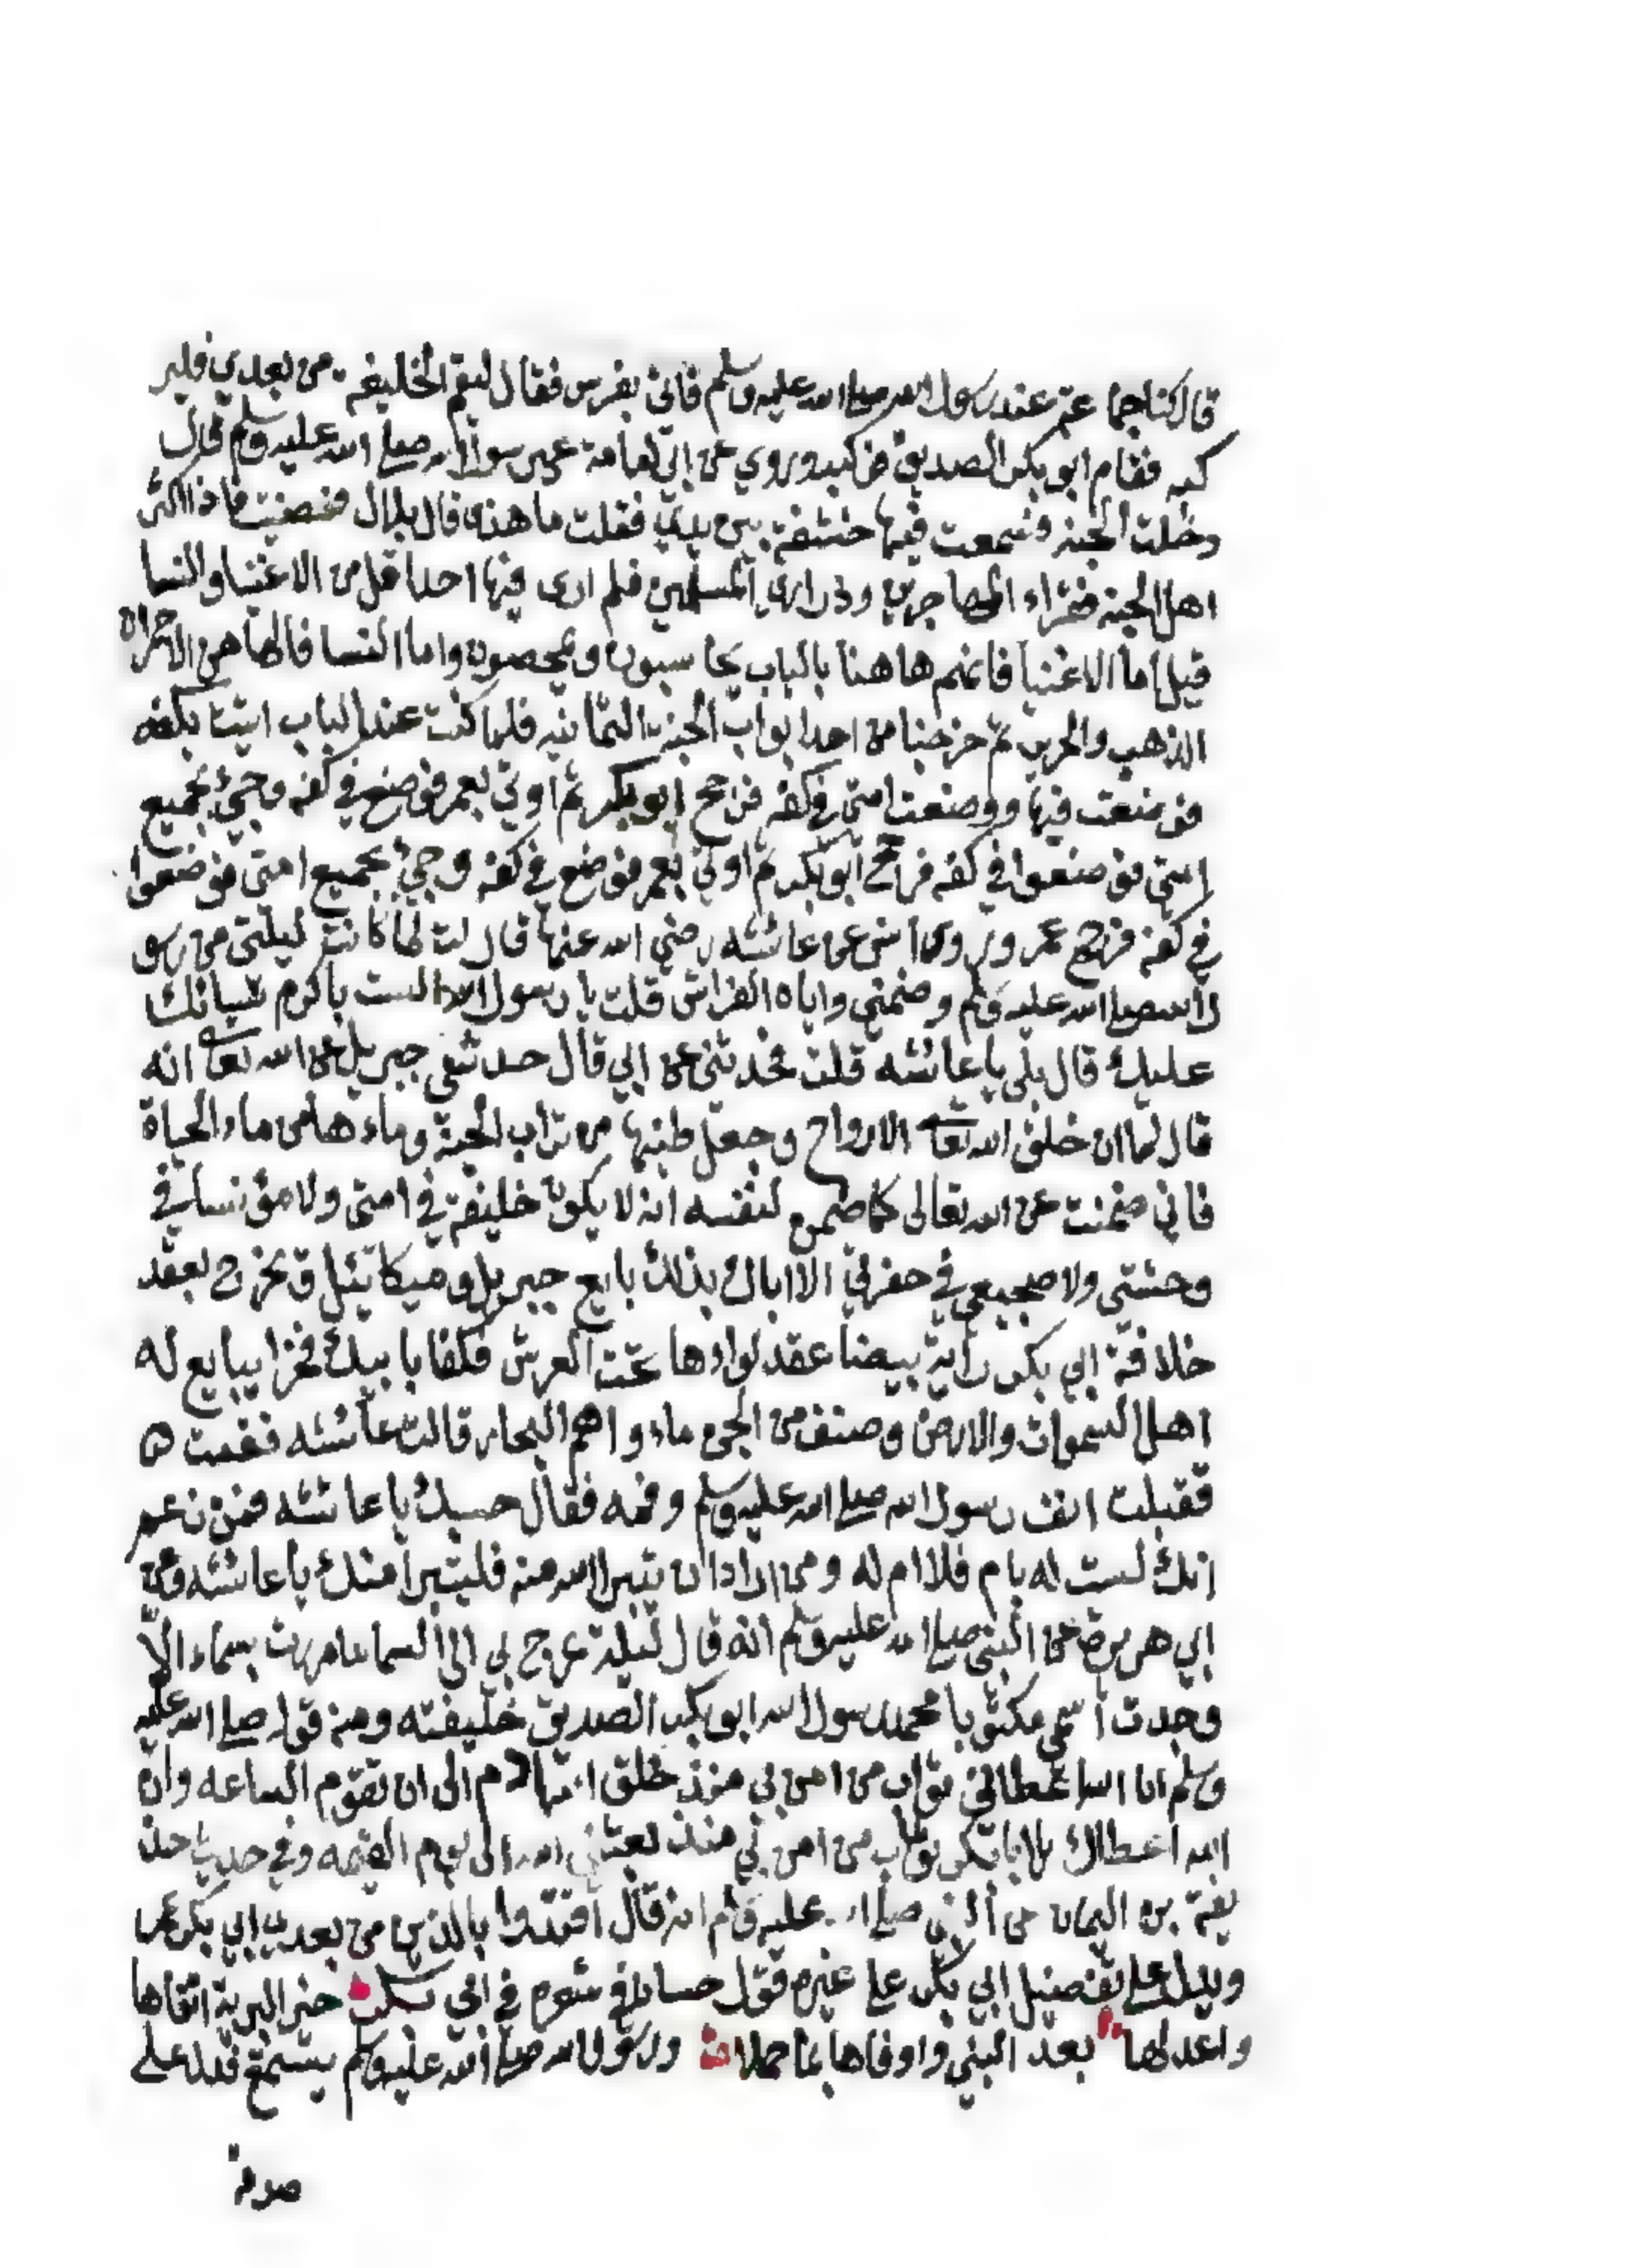 قال كنا جماعة عند رسول الله صلى الله عليه وسلم فاتي بفرس فقال ليقم الخليفة من بعدي فلير
كبه فقام ابو بكر الصديق فركبه وروي عن ابي امامة عن رسول الله صلى الله عليه وسلم قال
دخلت الجنة فسمعت فيها خشفة بين يدي فقلت ما هذه قال بلال فمضيت فاذا اكثر
اهل الجنة فقراء المهاجرين وذراري المسلمين فلم ارى فيها احدا اقل من الاغنيا والنسا
قيل اما الاغنيا فانهم هاهنا بالباب يحاسبون ويمحصون واما النسا فالهاهن الاحمران
الذهب والحرير ثم خرجنا من احد ابواب الجنة الثمانيه فلما كنت عند الباب اتيت بكفه
فوضعت فيها ووضعت امتي في كفه فرجح ابو بكر ثم اوتي بعمر فوضع في كفه وجيء بجميع
امتي فوضعوا في كفه فرجح ابو بكر ثم اوتي بعمر فوضع في كفه وجيء بجميع امتي فوضعوا
في كفه فرجح عمر وروى انس عن عائشه رضي الله عنها قالت لما كانت ليلتي من رسو
ل الله صلى الله عليه وسلم وضمني واياه الفراش قلت يا رسول الله الست باكرم نسائك
عليك قال بلى يا عائشه قلت فحدثني عن ابي قال حدثني جبريل عن الله تعالى انه
قال لما ان خلق الله تعالى الارواح وجعل طينها من تراب الجنة وماءها من ماء الحياة
فاني ضمنت عن الله تعالى كما ضمن لنفسه انه لا يكون خليفة في امتي ولا مؤنسا في
وحشتي ولا ضجيعي في حفرتي الا اباك بذلك بايع جبريل وميكائيل وتخرج بعقد
خلافة ابي بكر راية بيضا عقد لواءها تحت العرش فكفا بابيك فخرا يبايع له
اهل السموات والارض وصنف من الجن ماء واهم البحار قالت عائشه فقمت ه
فقبلت انف رسول الله صلى الله عليه وسلم وفمه فقال حسبك يا عائشه فمن زعم
انك لست له بام فلا ام له ومن اراد ان يتبرا الله منه فليتبرا منك يا عائشه وعن
ابي هريرة عن النبي صلى الله عليه وسلم انه قال ليلة عرج بي الى السما ما مررت بسماء الا
وجدت اسمي مكتوبا محمد رسول الله ابو بكر الصديق خليفته ومنه قوله صلى الله عليه
وسلم ان الله اعطاني ثواب من امن بي منذ خلق الله ادم الى ان تقوم الساعه وان
الله اعطاك يا ابا بكر ثواب من امن بي منذ بعثني الله الى يوم القيمه وفي حديث حذ
يفة بن اليمان عن النبي صلى الله عليه وسلم انه قال اقتدوا بالذين من بعدي ابي بكر وعمر
ويدل على تفضيل ابي بكر على غيره قول حسان في شعره في ابي بكر خير البرية اتقاها
واعدلها بعد النبي واوفاها بما حملا ورسول الله صلى الله عليه وسلم يستمع فدل على
صدقه